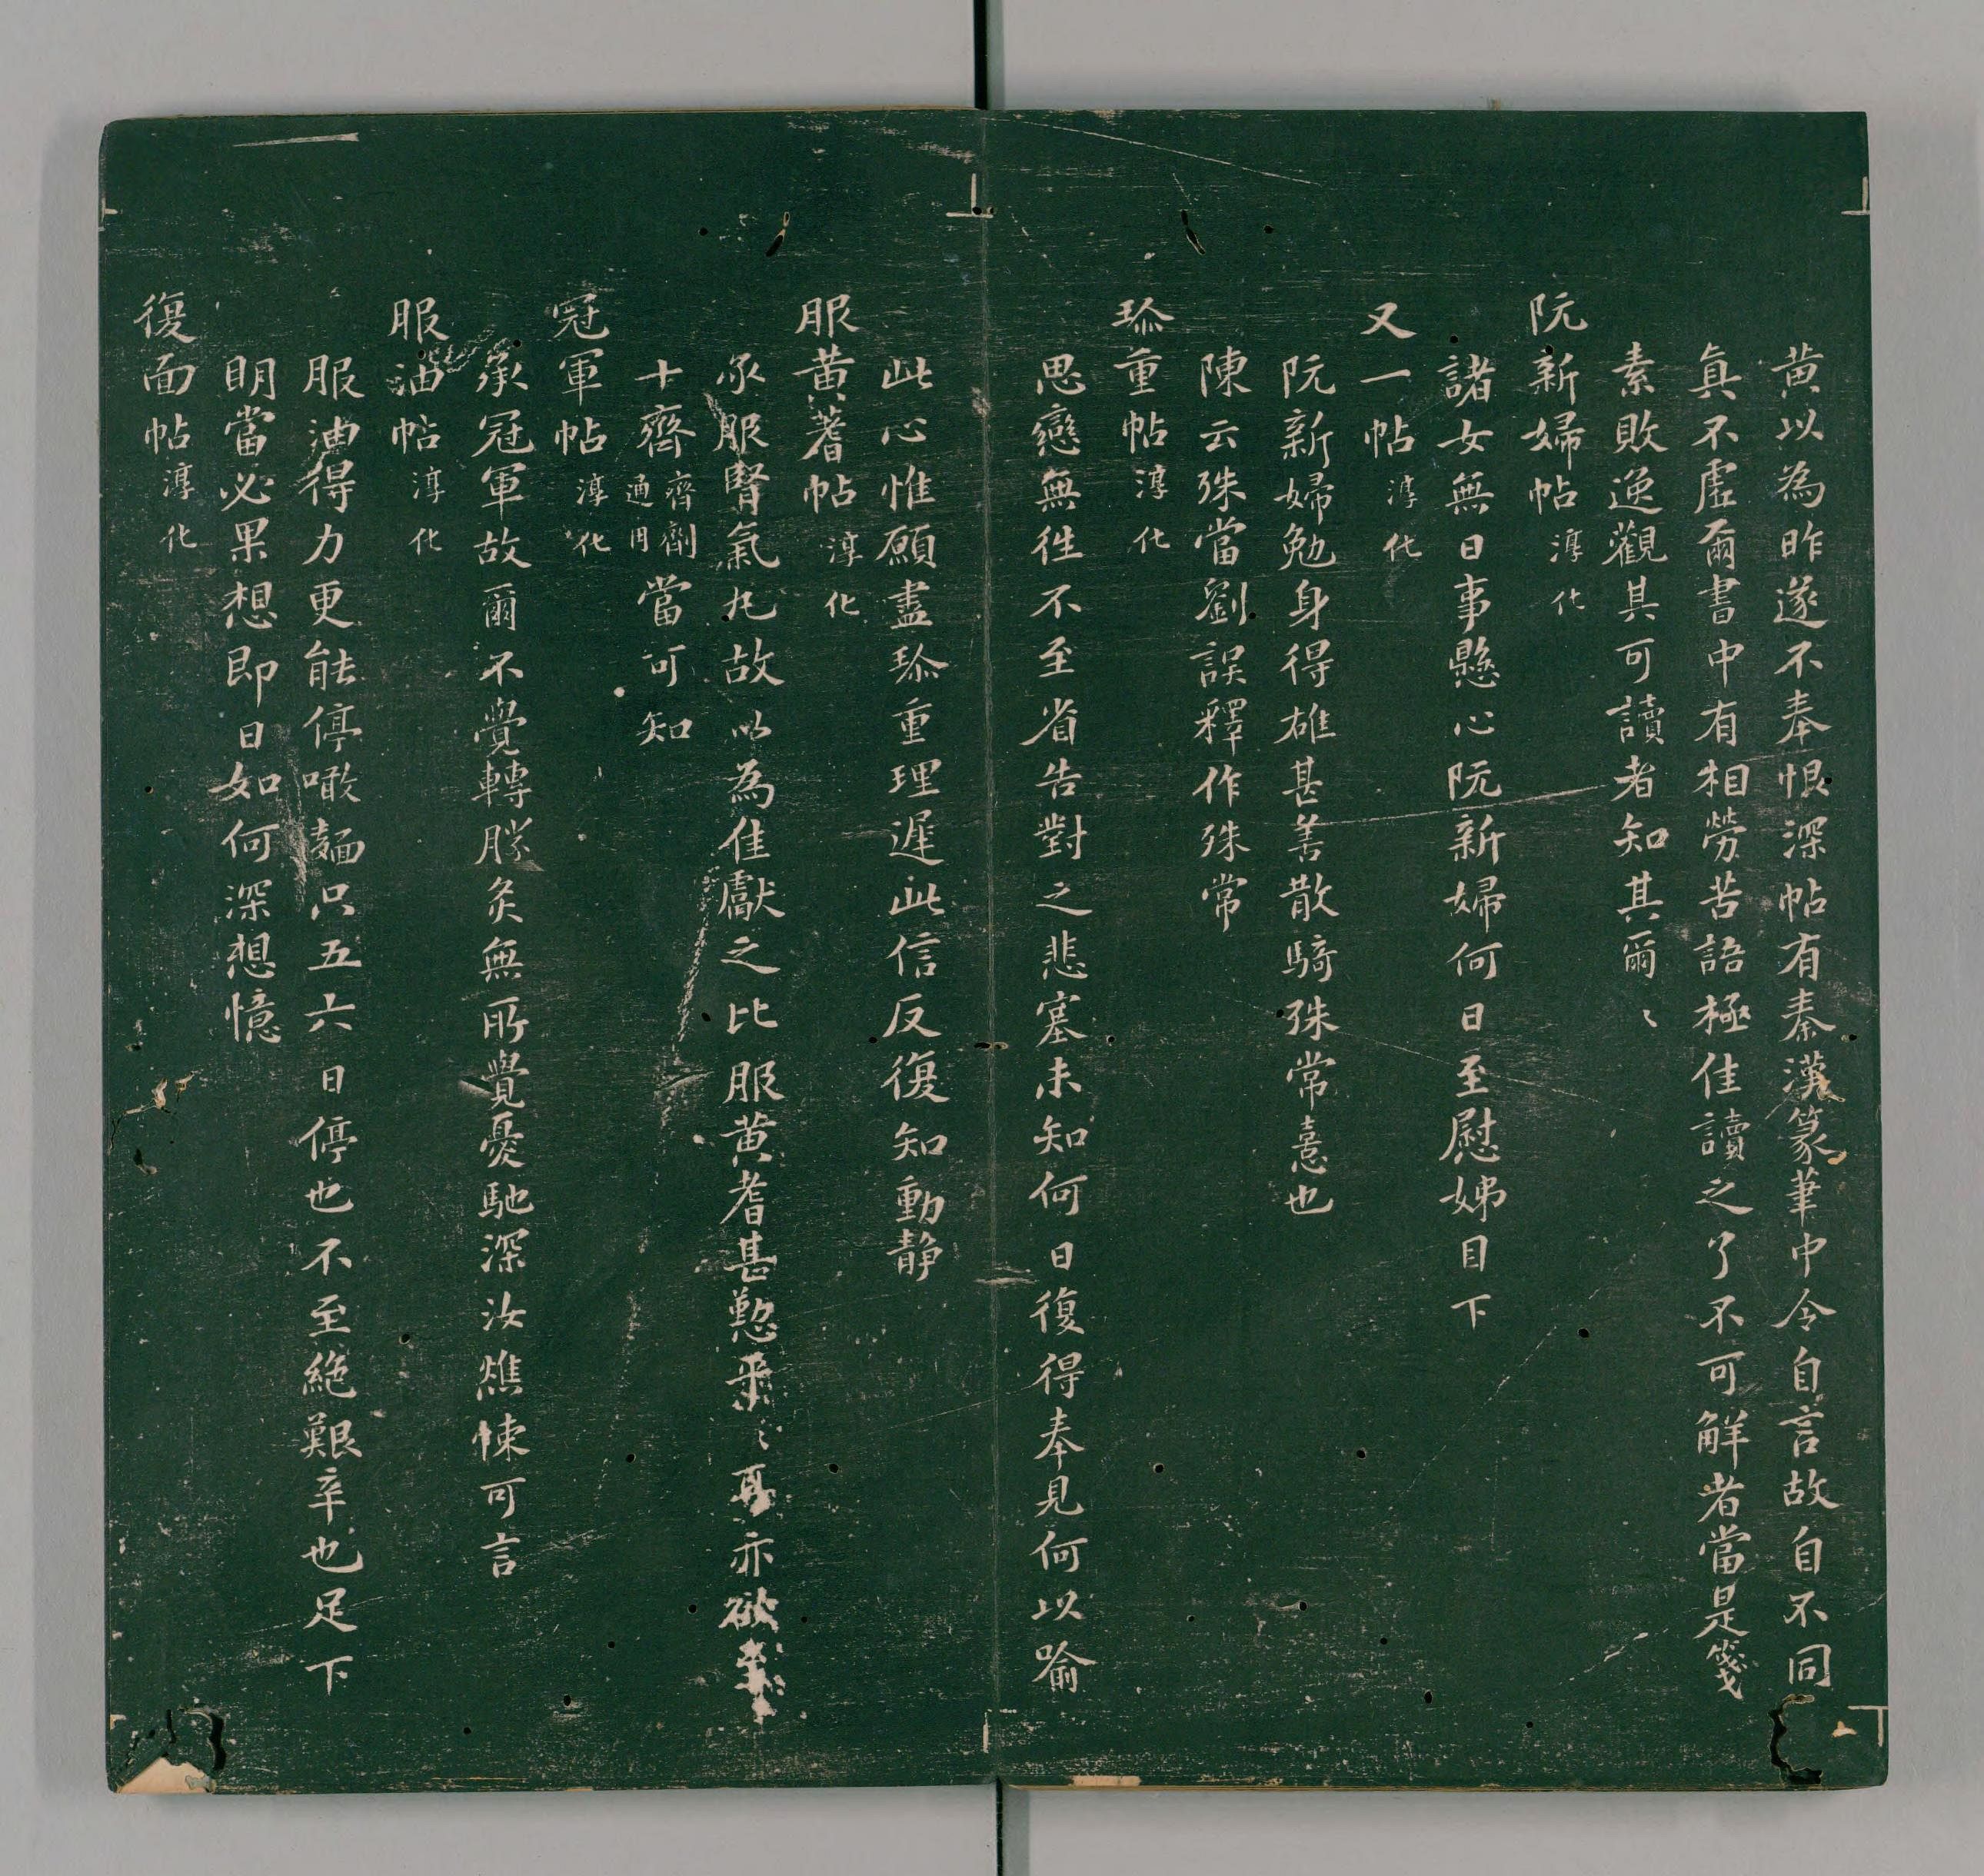 黄以為昨遂不奉恨深帖有秦漢篆筆中令自言故自不同
真不虛爾書中有相勞苦語極佳讀之了不可解者當是箋
素敗逸觀其可讀者知其爾〻
阮新婦帖淳化
諸女無日事懸心阮新婦何日至慰姊目下
又一帖淳化
阮新婦勉身得雄甚善散騎殊常憙也
陳云殊當劉誤釋作殊常
珎重帖淳化
思戀無徃不至省告對之悲塞未知何日復得奉見何以喻
此心惟願盡珎重理遲此信反復知動静
服黄蓍帖淳化
承服腎氣丸故以為佳獻之比服黄耆甚懃平〻耳亦欲至
十齊齊劑通用當可知
冠軍帖淳化
承冠軍故爾不覺轉勝灸無所覺憂馳深汝燋悚可言
服油帖淳化
服油得力更能停噉麺只五六日停也不至絶艱辛也足下
明當必果想即日如何深想憶
復面帖淳化